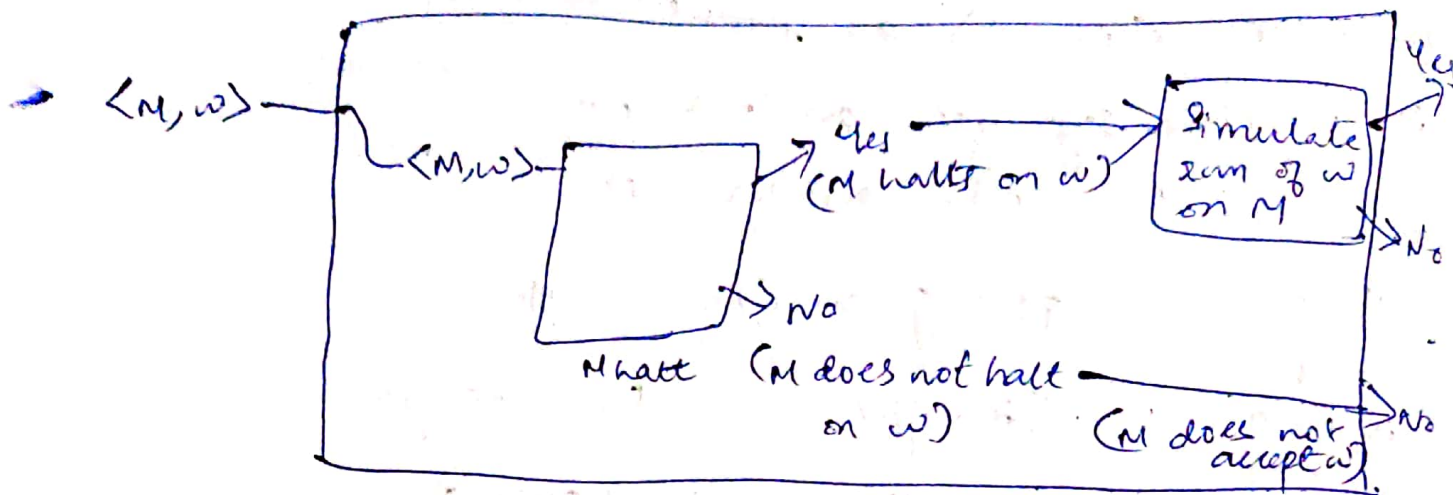 <M, w>
<M, w>
Yes
(M halts on w)
Simulate
run of w
on M
Yes
No
No
Mhalt
(M does not halt
on w)
(M does not
accept w)
No